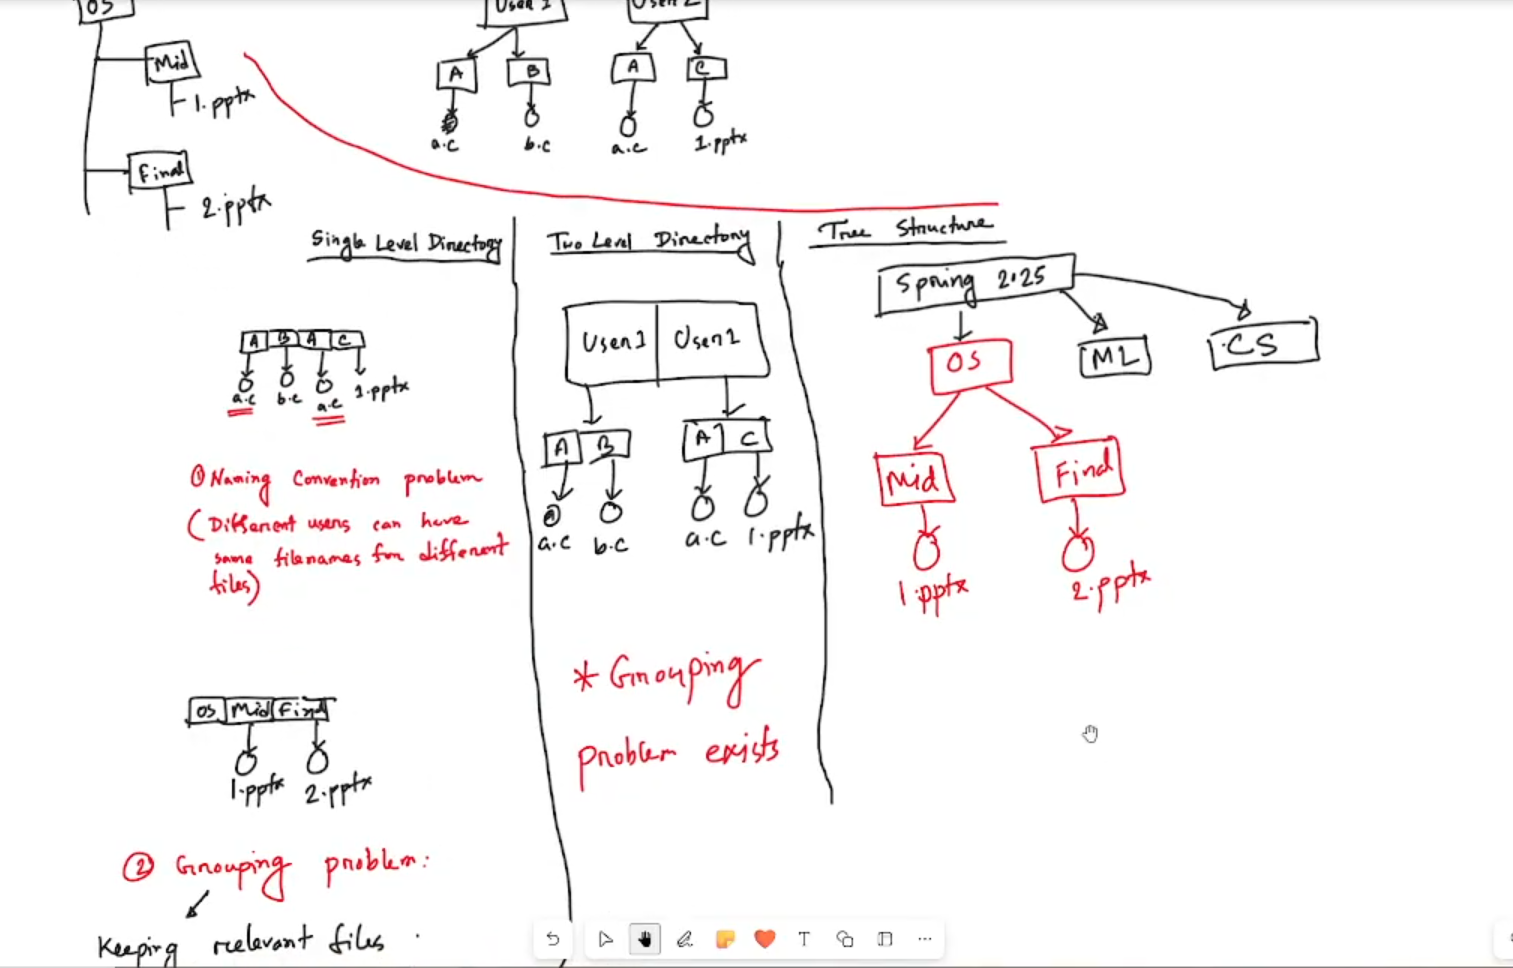 OS
Mid
1.pptx
Final
2.pptx
User 1
User 2
A
B
A
C
a.c
b.c
a.c
1.pptx
Single Level Directory
A B A C
a.c b.c a.c 1.pptx
① Naming Convention problem
(Different users can have
same filenames for different
files)
OS Mid Final
1.pptx 2.pptx
② Grouping problem:
Keeping relevant files
Two Level Directory
User1 User2
A B
A C
a.c b.c
a.c 1.pptx
* Grouping
problem exists
Tree Structure
Spring 2025
OS
ML
CS
Mid
Final
1.pptx
2.pptx
T